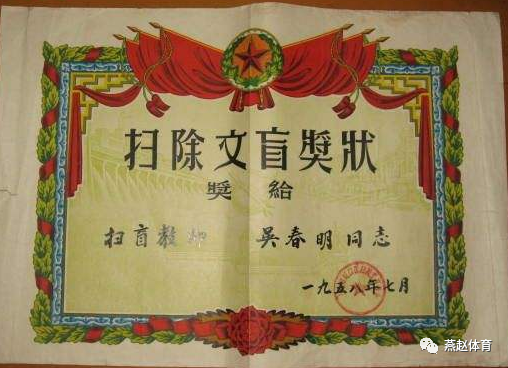 扫除文盲奬狀
奬給
扫盲教师 吳春明同志
一九五八年七月
燕赵体育